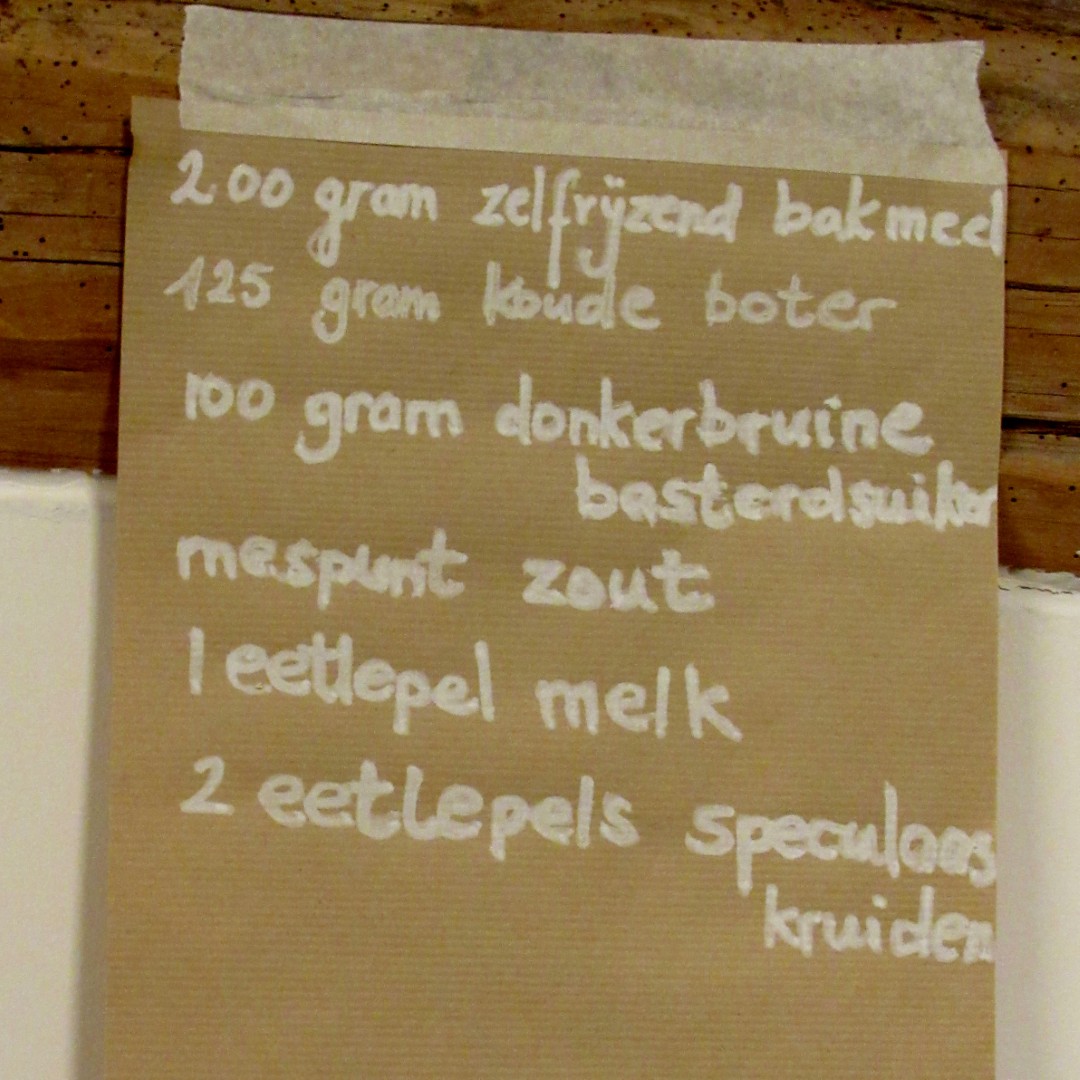 200 gram zelfrijzend bakmeel
125 gram koude boter
100 gram donkerbruine
basterdsuiker
mespunt zout
1 eetlepel melk
2 eetlepels speculaas
kruiden